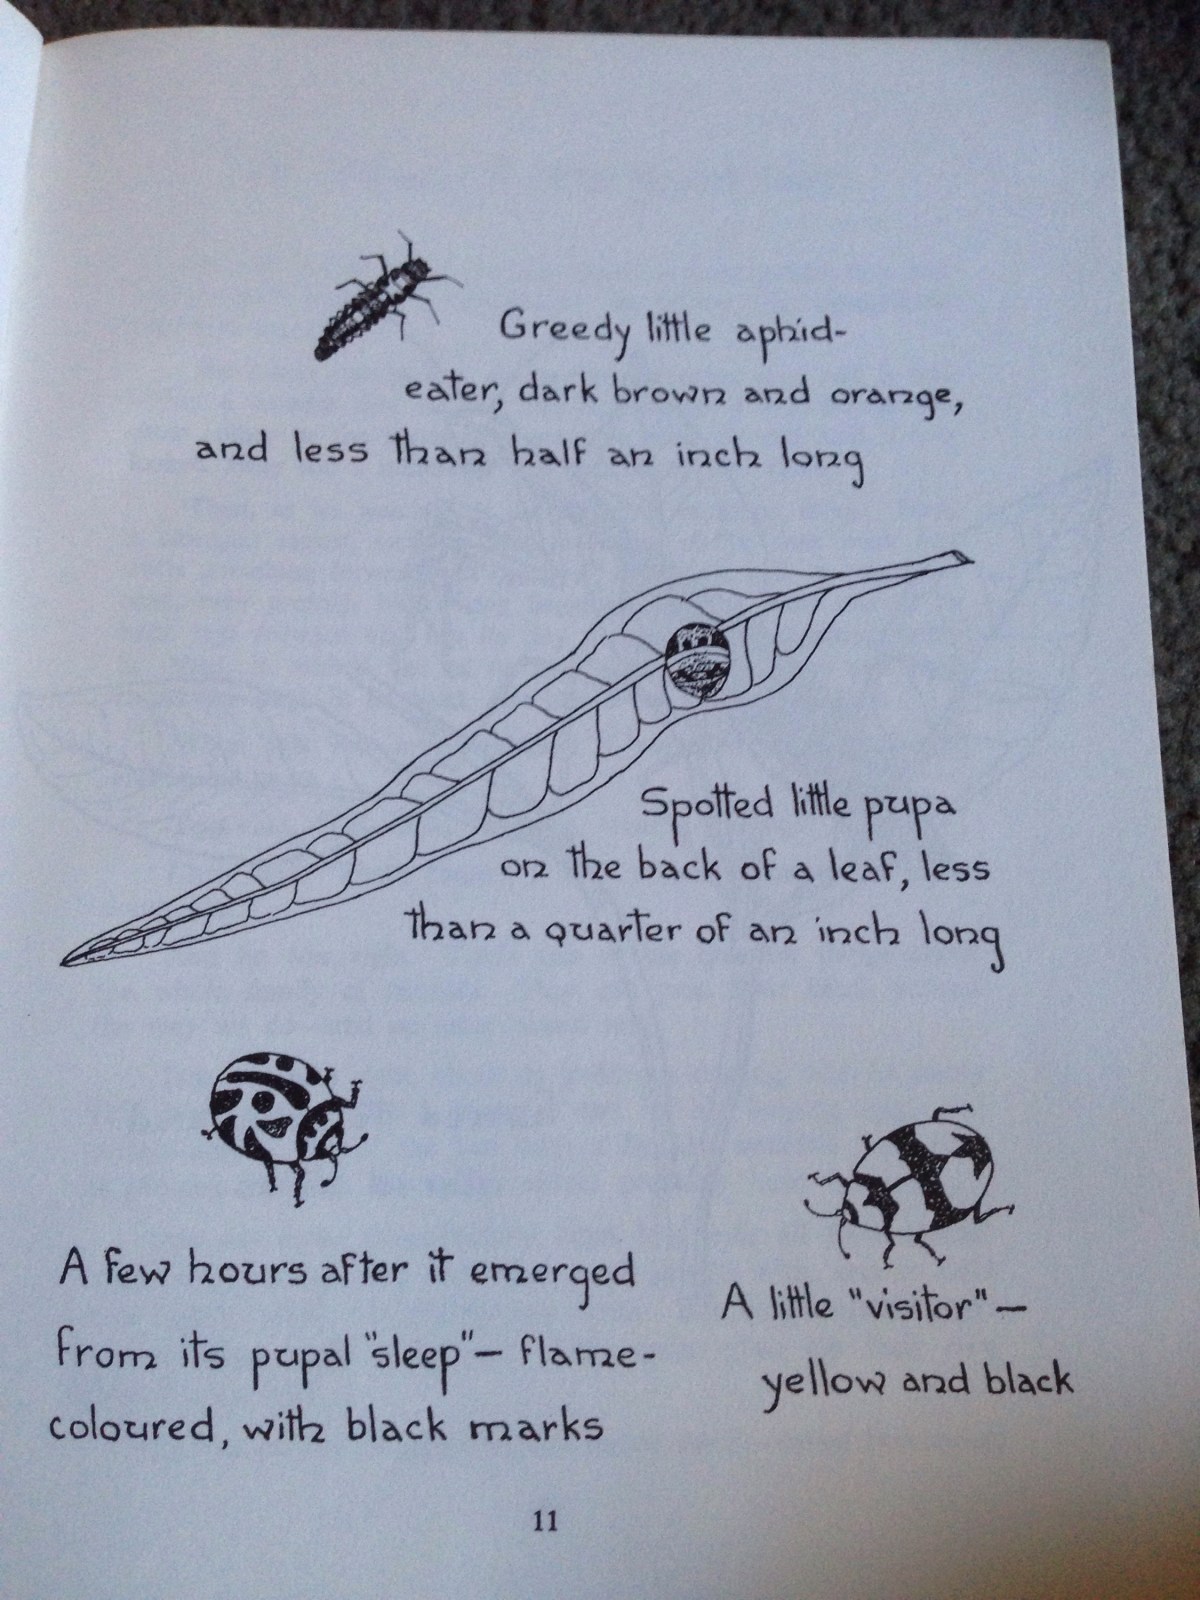 Greedy little aphid-
eater, dark brown and orange,
and less than half an inch long
Spotted little pupa
on the back of a leaf, less
than a quarter of an inch long
A few hours after it emerged
from its pupal "sleep" — flame-
coloured, with black marks
A little "visitor" —
yellow and black
11